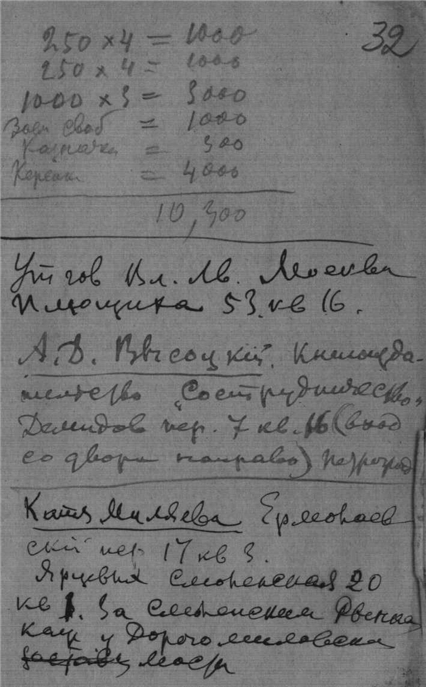 32
250 × 4 = 1000
250 × 4 = 1000
1000 × 3 = 3000
Заем своб = 1000
Казначе = 300
Керенки = 4000
10,300
Утгов Вл. Лв. Москва
Плющиха 53. кв 16.
А. D. Высоцкій. Книгоизда-
тельство „Сотрудничество"
Демидов пер. 7 кв. 16 (вход
со двора направо) Петрогр
Катя Миляева Ермолаев
скій пер 17 кв 3.
Смоленская 20
кв 1. За Смоленским рынка
у Дорогомиловска
заставы моста